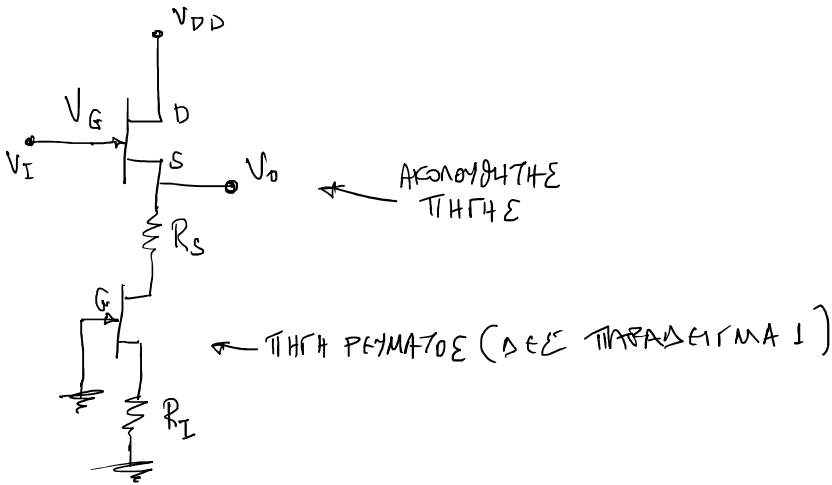 V_DD
V_G
D
V_I
S
V_O
ΑΚΟΛΟΥΘΗΤΗΣ
ΠΗΓΗΣ
R_S
G
ΠΗΓΗ ΡΕΥΜΑΤΟΣ (ΔΕΣ ΠΑΡΑΔΕΙΓΜΑ 1)
R_I